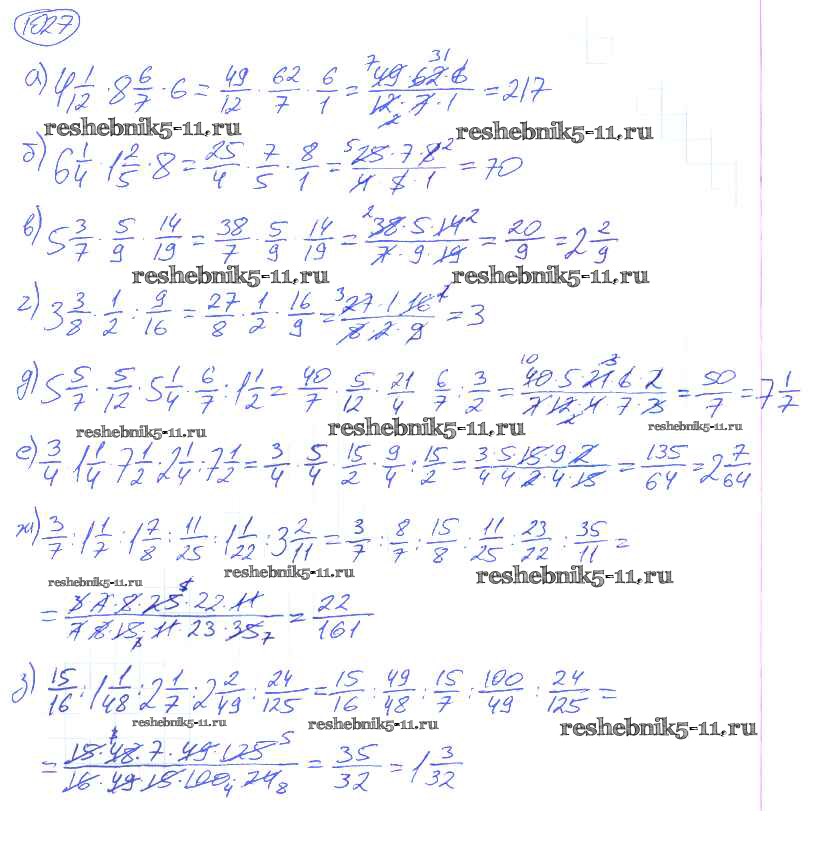 1027
а) 4 1/12 · 8 6/7 · 6 = 49/12 · 62/7 · 6/1 = 49·62·6/12·7·1 = 217
7 31 2
reshebnik5-11.ru reshebnik5-11.ru
б) 6 1/4 · 1 2/5 · 8 = 25/4 · 7/5 · 8/1 = 25·7·8/4·5·1 = 70
5 2
в) 5 3/7 · 5/9 · 14/19 = 38/7 · 5/9 · 14/19 = 38·5·14/7·9·19 = 20/9 = 2 2/9
2 2
reshebnik5-11.ru reshebnik5-11.ru
г) 3 3/8 · 1/2 : 9/16 = 27/8 · 1/2 · 16/9 = 27·1·16/8·2·9 = 3
3
д) 5 5/7 · 5/12 · 5 1/4 · 6/7 : 1 1/2 = 40/7 · 5/12 · 21/4 · 6/7 : 3/2 = 40·5·21·6·2/7·12·4·7·3 = 50/7 = 7 1/7
10 3 2
reshebnik5-11.ru reshebnik5-11.ru reshebnik5-11.ru
е) 3/4 · 1 1/4 · 7 1/2 · 2 1/4 : 7 1/2 = 3/4 · 5/4 · 15/2 · 9/4 : 15/2 = 3·5·15·9·2/4·4·2·4·15 = 135/64 = 2 7/64
ж) 3/7 : 1 1/7 : 1 7/8 : 11/25 : 1 1/22 : 3 2/11 = 3/7 : 8/7 : 15/8 : 11/25 : 23/22 : 35/11 =
reshebnik5-11.ru reshebnik5-11.ru reshebnik5-11.ru
= 3·7·8·25·22·11/7·8·15·11·23·35 = 22/161
7
з) 15/16 : 1 1/48 : 2 1/7 : 2 2/49 : 24/125 = 15/16 : 49/48 : 15/7 : 100/49 : 24/125 =
reshebnik5-11.ru reshebnik5-11.ru reshebnik5-11.ru
= 15·48·7·49·125/16·49·15·100·24 = 35/32 = 1 3/32
5 4 8